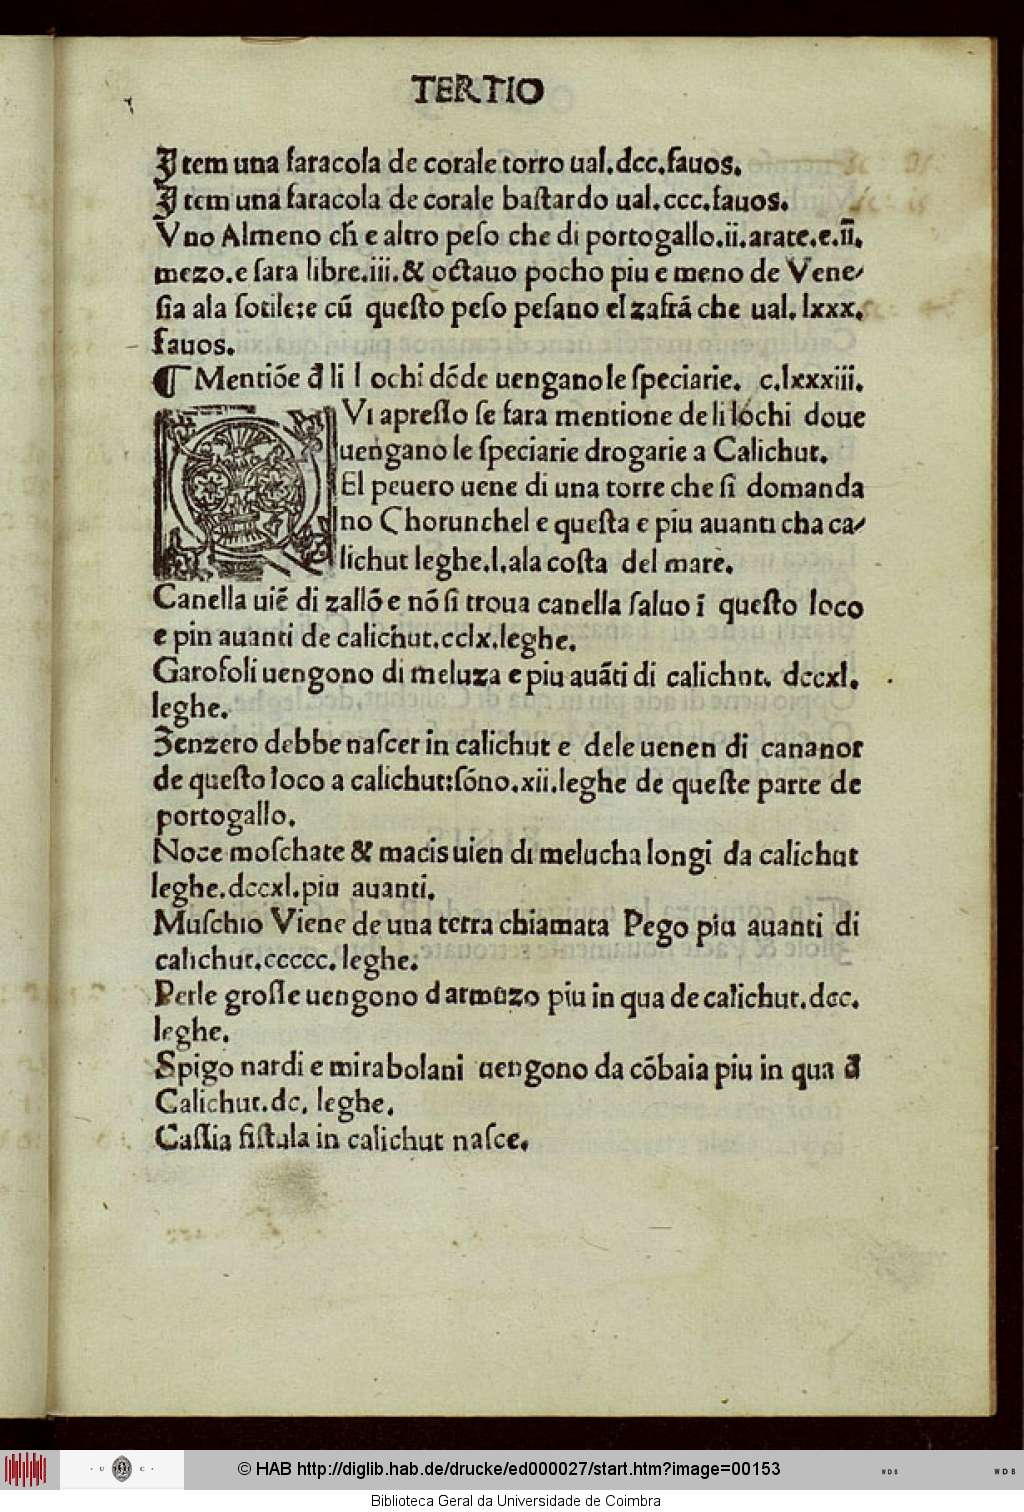 TERTIO
Item una faracola de corale torro ual.dcc.fauos.
Item una faracola de corale bastardo ual.ccc.fauos.
Vno Almeno ch̄ e altro peso che di portogallo.ii.arate.e.ii̅.
mezo.e sara libre.iii.& octauo pocho piu e meno de Vene-
sia ala sotile:e cū questo peso pesano el zafrā che ual. lxxx.
fauos.
¶ Mentiōe đ li lochi dōde uengano le speciarie. c.lxxxiii.
QVi apresso se fara mentione de li lochi doue
uengano le speciarie drogarie a Calichut.
El peuero uene di una torre che si domanda
no Chorunchel e questa e piu auanti cha ca-
lichut leghe.l.ala costa del mare.
Canella uiē di zallō e nō si troua canella saluo ī questo loco
e pin auanti de calichut.cclx.leghe.
Garofoli uengono di meluza e piu auāti di calichut. dccxl.
leghe.
Zenzero debbe nascer in calichut e dele uenen di cananor
de questo loco a calichut:sōno.xii.leghe de queste parte de
portogallo.
Noce moschate & macis uien di melucha longi da calichut
leghe.dccxl.piu auanti.
Muschio Viene de una terra chiamata Pego piu auanti di
calichut.ccccc. leghe.
Perle grosse uengono d armuzo piu in qua de calichut.dcc.
leghe.
Spigo nardi e mirabolani uengono da cōbaia piu in qua đ
Calichut.dc. leghe.
Cassia fistula in calichut nasce.
· U C ·
© HAB http://diglib.hab.de/drucke/ed000027/start.htm?image=00153
WDB
WDB
Biblioteca Geral da Universidade de Coimbra